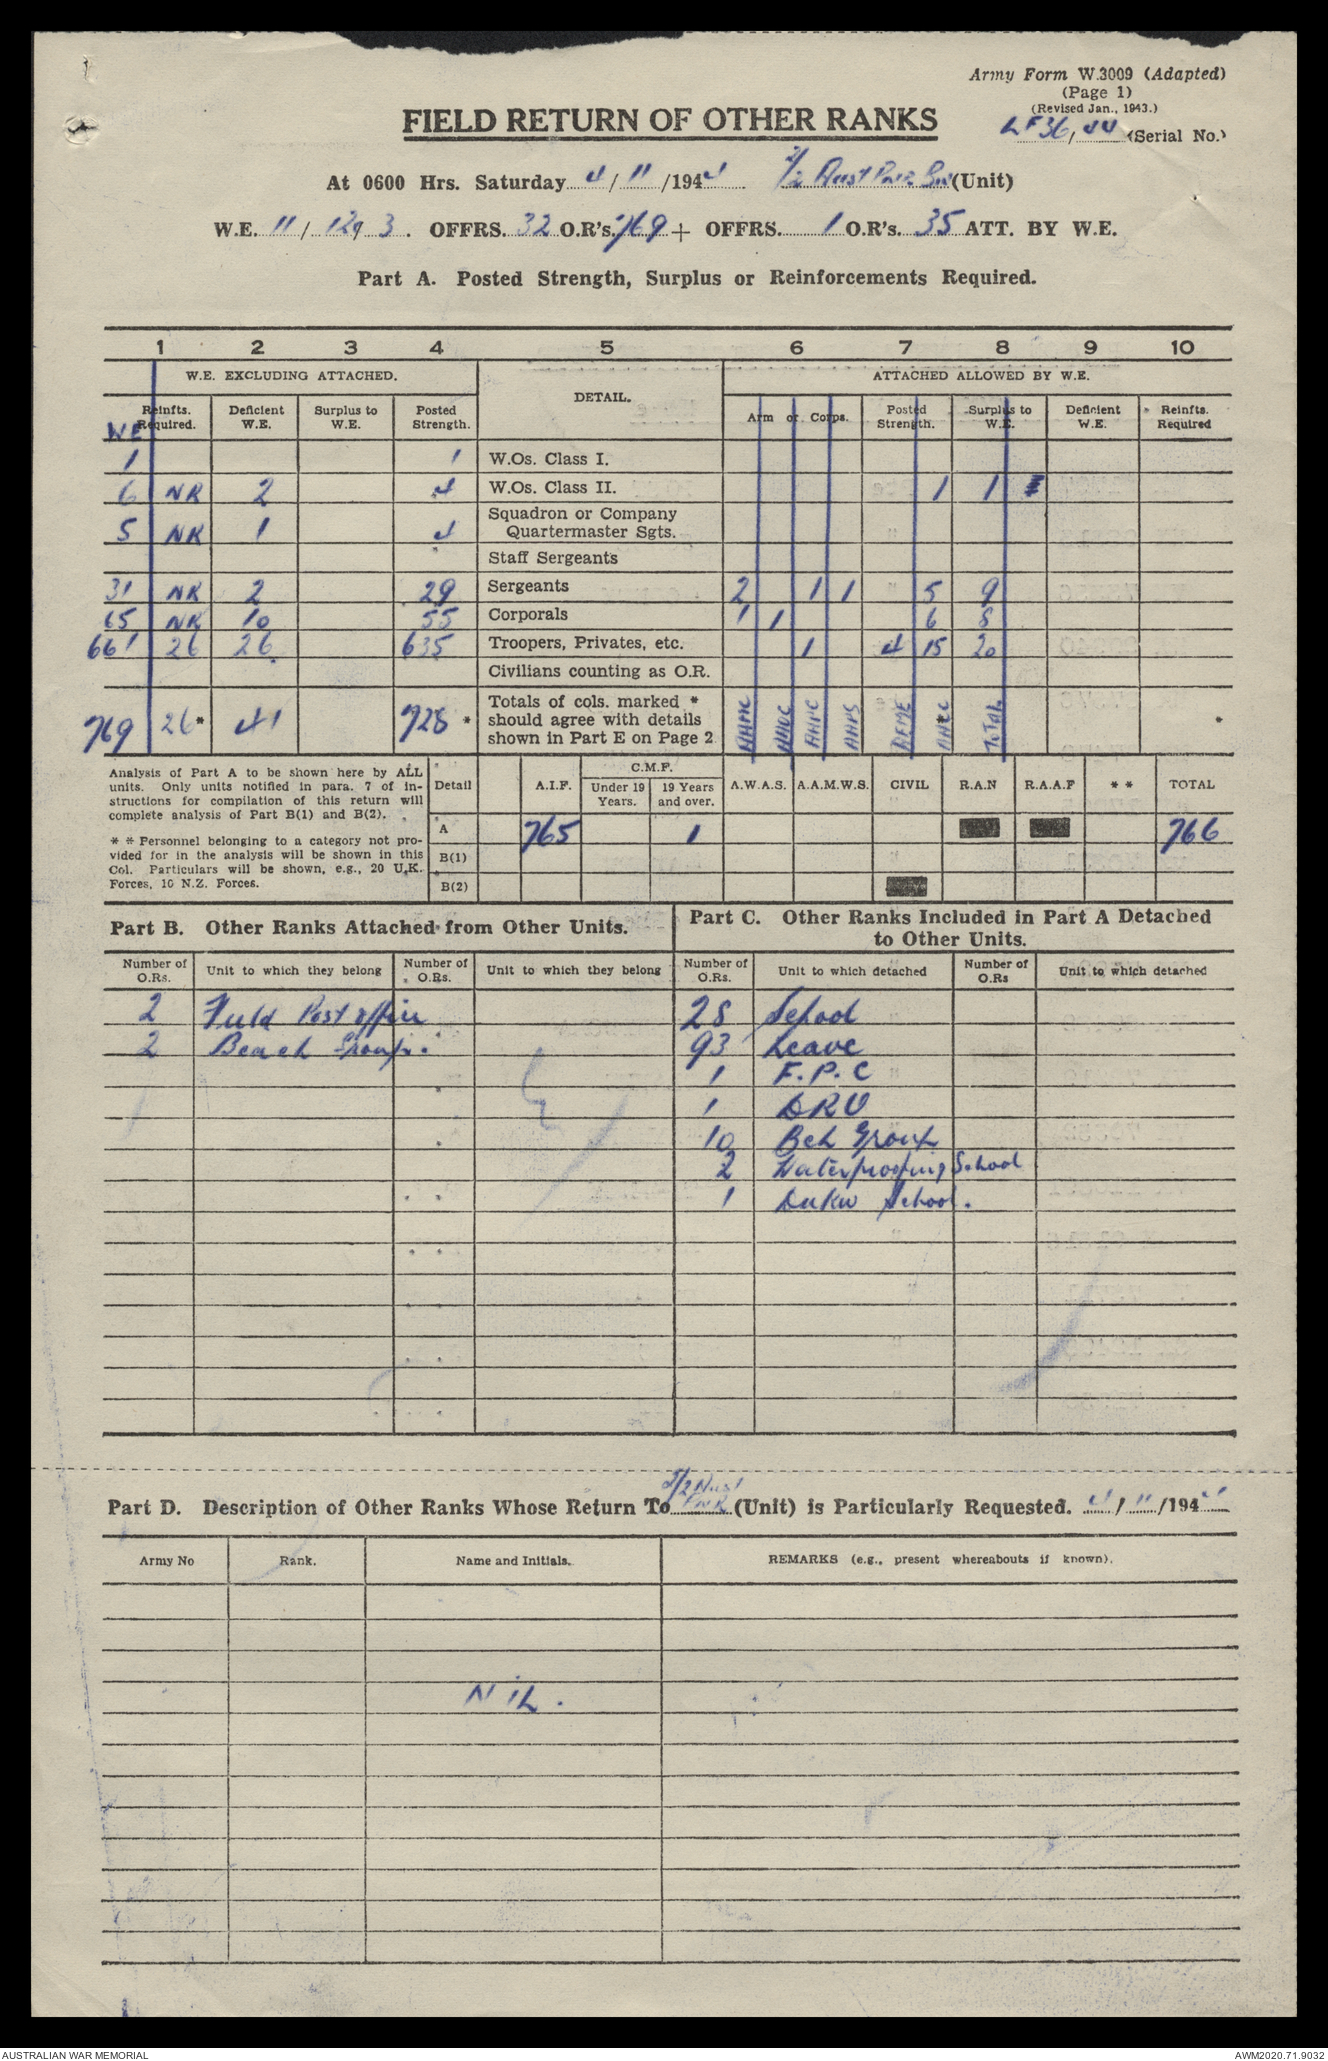 Army Form W.3009 (Adapted)
(Page 1)
(Revised Jan., 1943.)
FIELD RETURN OF OTHER RANKS
LF36/44 (Serial No.)
At 0600 Hrs. Saturday 4/11/1944 2/2 Aust Pnr Bn (Unit)
W.E. 11/129 3. OFFRS. 32 O.R's. 769 + OFFRS. 1 O.R's. 35 ATT. BY W.E.
Part A. Posted Strength, Surplus or Reinforcements Required.
1 2 3 4 5 6 7 8 9 10
W.E. EXCLUDING ATTACHED. DETAIL. ATTACHED ALLOWED BY W.E.
WE Reinfts. Required. Deficient W.E. Surplus to W.E. Posted Strength. Arm or Corps. Posted Strength. Surplus to W.E. Deficient W.E. Reinfts. Required
1 1 W.Os. Class I.
6 NR 2 4 W.Os. Class II. 1 1
5 NR 1 4 Squadron or Company Quartermaster Sgts.
Staff Sergeants
31 NR 2 29 Sergeants 2 1 1 5 9
65 NR 10 55 Corporals 1 1 6 8
661 26 26 635 Troopers, Privates, etc. 1 4 15 20
Civilians counting as O.R.
769 26* 41 728 * Totals of cols. marked * should agree with details shown in Part E on Page 2 AAOC AAMC AAPS AEME AACC TOTAL *
Analysis of Part A to be shown here by ALL units. Only units notified in para. 7 of instructions for compilation of this return will complete analysis of Part B(1) and B(2).
* * Personnel belonging to a category not provided for in the analysis will be shown in this Col. Particulars will be shown, e.g., 20 U.K. Forces, 10 N.Z. Forces.
Detail A.I.F. C.M.F. Under 19 Years. 19 Years and over. A.W.A.S. A.A.M.W.S. CIVIL R.A.N R.A.A.F * * TOTAL
A 765 1 766
B(1)
B(2)
Part B. Other Ranks Attached from Other Units.
Part C. Other Ranks Included in Part A Detached to Other Units.
Number of O.Rs. Unit to which they belong Number of O.Rs. Unit to which they belong Number of O.Rs. Unit to which detached Number of O.Rs Unit to which detached
2 Field Post office 28 School
2 Beach Group. 93 Leave
1 F.P.C
1 DRU
10 Bch Group
2 Waterproofing School
1 Dukw School.
Part D. Description of Other Ranks Whose Return To 2/2 Aust Pnr (Unit) is Particularly Requested. 4/11/1944
Army No Rank. Name and Initials. REMARKS (e.g., present whereabouts if known).
NIL.
AUSTRALIAN WAR MEMORIAL
AWM2020.71.9032